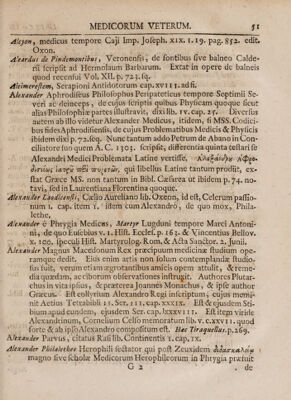 MEDICORUM VETERUM. 51
Alcyon, medicus tempore Caji Imp. Joseph. XIX. 1. 19. pag. 852. edit.
Oxon.
Aleardus de Pindemontibus, Veronensis, de fontibus sive balneo Calde-
rii scripsit ad Hermolaum Barbarum. Extat in opere de balneis
quod recensui Vol. XII. p. 723. sq.
Aleimerestem, Serapioni Antidotorum cap. XVIII. adst.
Alexander Aphrodiseus Philosophus Peripateticus tempore Septimii Se-
veri ac deinceps, de cujus scriptis quibus Physicam quoque sicut
alias Philosophiæ partes illustravit, dixi lib. IV. cap. 25. Diversus
autem ab illo videtur Alexander Medicus, itidem, si MSS. Codici-
bus fides Aphrodisiensis, de cujus Problematibus Medicis & Physicis
ibidem dixi p. 72. seq. Nunc tantum addo Petrum de Abano in Con-
ciliatore suo quem A. C. 1303. scripsit, differentia quinta testari se
Alexandri Medici Problemata Latine vertisse.
qui libellus Latine tantum prodiit, ex-
stat Græce MS. non tantum in Bibl. Cæsarea ut ibidem p. 74. no-
tavi, sed in Laurentiana Florentina quoque.
Alexander Laodicensis, Cælio Aureliano lib. Oxon, id est, Celerum passio-
num 1. cap. item 1. idem cum Alexandro, de quo mox, Phila-
lethe.
Alexander ὁ Phrygia Medicus, Martyr Lugduni tempore Marci Antoni-
ni, de quo Eusebius V. 1. Hist. Eccles. p. 163. & Vincentius Bellov.
X. 100. speculi Hist. Martyrolog. Rom. & Acta Sanctor. 2. Junii.
Alexander Magnus Macedonum Rex præcipuam medicinæ studium ope-
ramque dedit. Ejus enim artis non solum contemplandæ studio-
sus fuit, verum etiam ægrotantibus amicis opem attulit, & reme-
dia quædam, ac ciborum observationes instrugit. Authores Plutar-
chus in vita ipsius, & præterea Joannes Monachus, & ipse author
Græcus. Est collyrium Alexandro Regi inscriptum, cujus memi-
nit Aetius Tetrabibli II. Ser. III. cap. XXXIX. Est & ejusdem Sti-
bium apud eundem, ejusdem Ser. cap. LXXXVIII. Est item viride
Alexandrinum, Cornelium Celso memoratum lib. V. c. XXVIII. quod
forte & ab ipso Alexandro compositum est. Hæc Tiraquellus. p. 269.
Alexander Parvus, citatus Rasi lib. Continentis 1. cap. IX.
Alexander Philalethes Herophili sectator qui post Zeuxidem διδασκαλείῳ
magno sive scholæ Medicorum Herophileorum in Phrygia præfuit
G 2 de